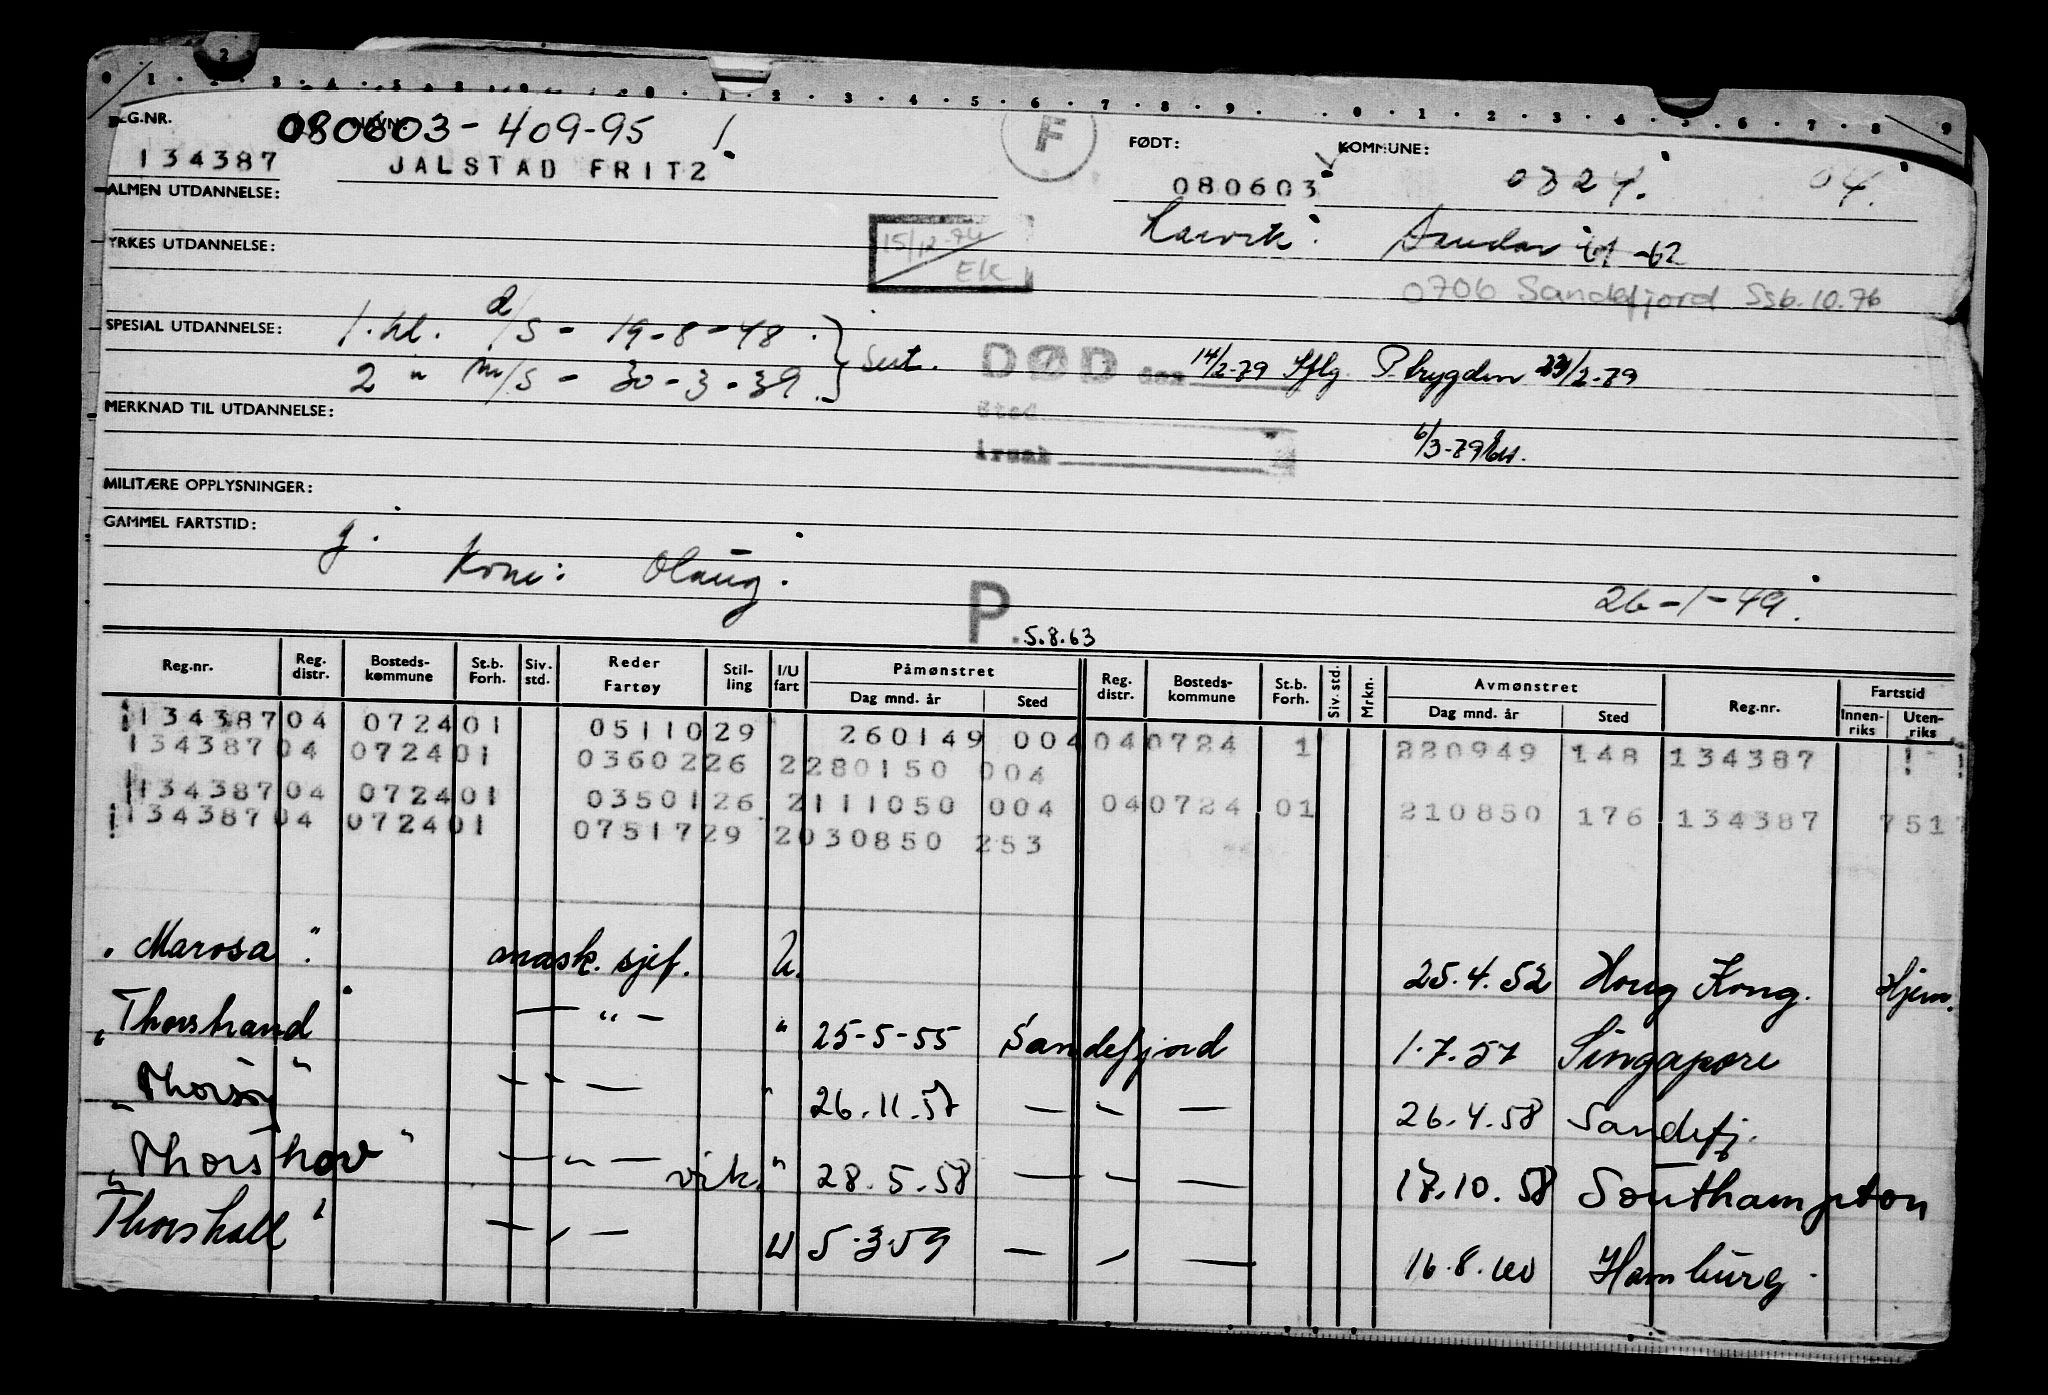 REG.NR. 080603-409-95
134387 JALSTAD FRITZ F FØDT: 080603 KOMMUNE: 0724. 04.
ALMEN UTDANNELSE:
Larvik. Sandar 61-62
YRKES UTDANNELSE: 15/12-74 EK
0706 Sandefjord Ssb. 10.76
SPESIAL UTDANNELSE: 1. kl. d/S - 19-8-48.
2 " m/S - 30-3-39. Sert. DØD den 14/2-79 Iflg. P.trygden 23/2-79
MERKNAD TIL UTDANNELSE: Sted
årsak 6/3-79
MILITÆRE OPPLYSNINGER:
GAMMEL FARTSTID: g.
Kone: Olaug.
26-1-49.
P. 5.8.63
Reg.nr. Reg. distr. Bosteds- kommune St.b. Forh. Siv. std. Reder Fartøy Stil- ling I/U fart Påmønstret Dag mnd. år Sted Reg. distr. Bosteds- kommune St.b. Forh. Siv. std. Mrkn. Avmønstret Dag mnd. år Sted Reg.nr. Fartstid Innen- riks Uten- riks
134387 04 0724 01 05110 29 260149 004 04 0724 1 220949 148 134387
134387 04 0724 01 03602 26 2 280150 004
134387 04 0724 01 03501 26 2 111050 004 04 0724 01 210850 176 134387 7517
134387 04 0724 01 07517 29 2 030850 253
"Marosa". mask. sjef. U. 25.4.52 Hong Kong. Hjem.
"Thorstrand" — " — " 25-5-55 Sandefjord 1.7.57 Singapore
"Thorsøy" — " — " 26.11.57 — " — 26.4.58 Sandefj.
"Thorshov" — " — vik. " 28.5.58 — " — 17.10.58 Southampton
"Thorshall" — " — U 5.3.59 — " — 16.8.60 Hamburg.